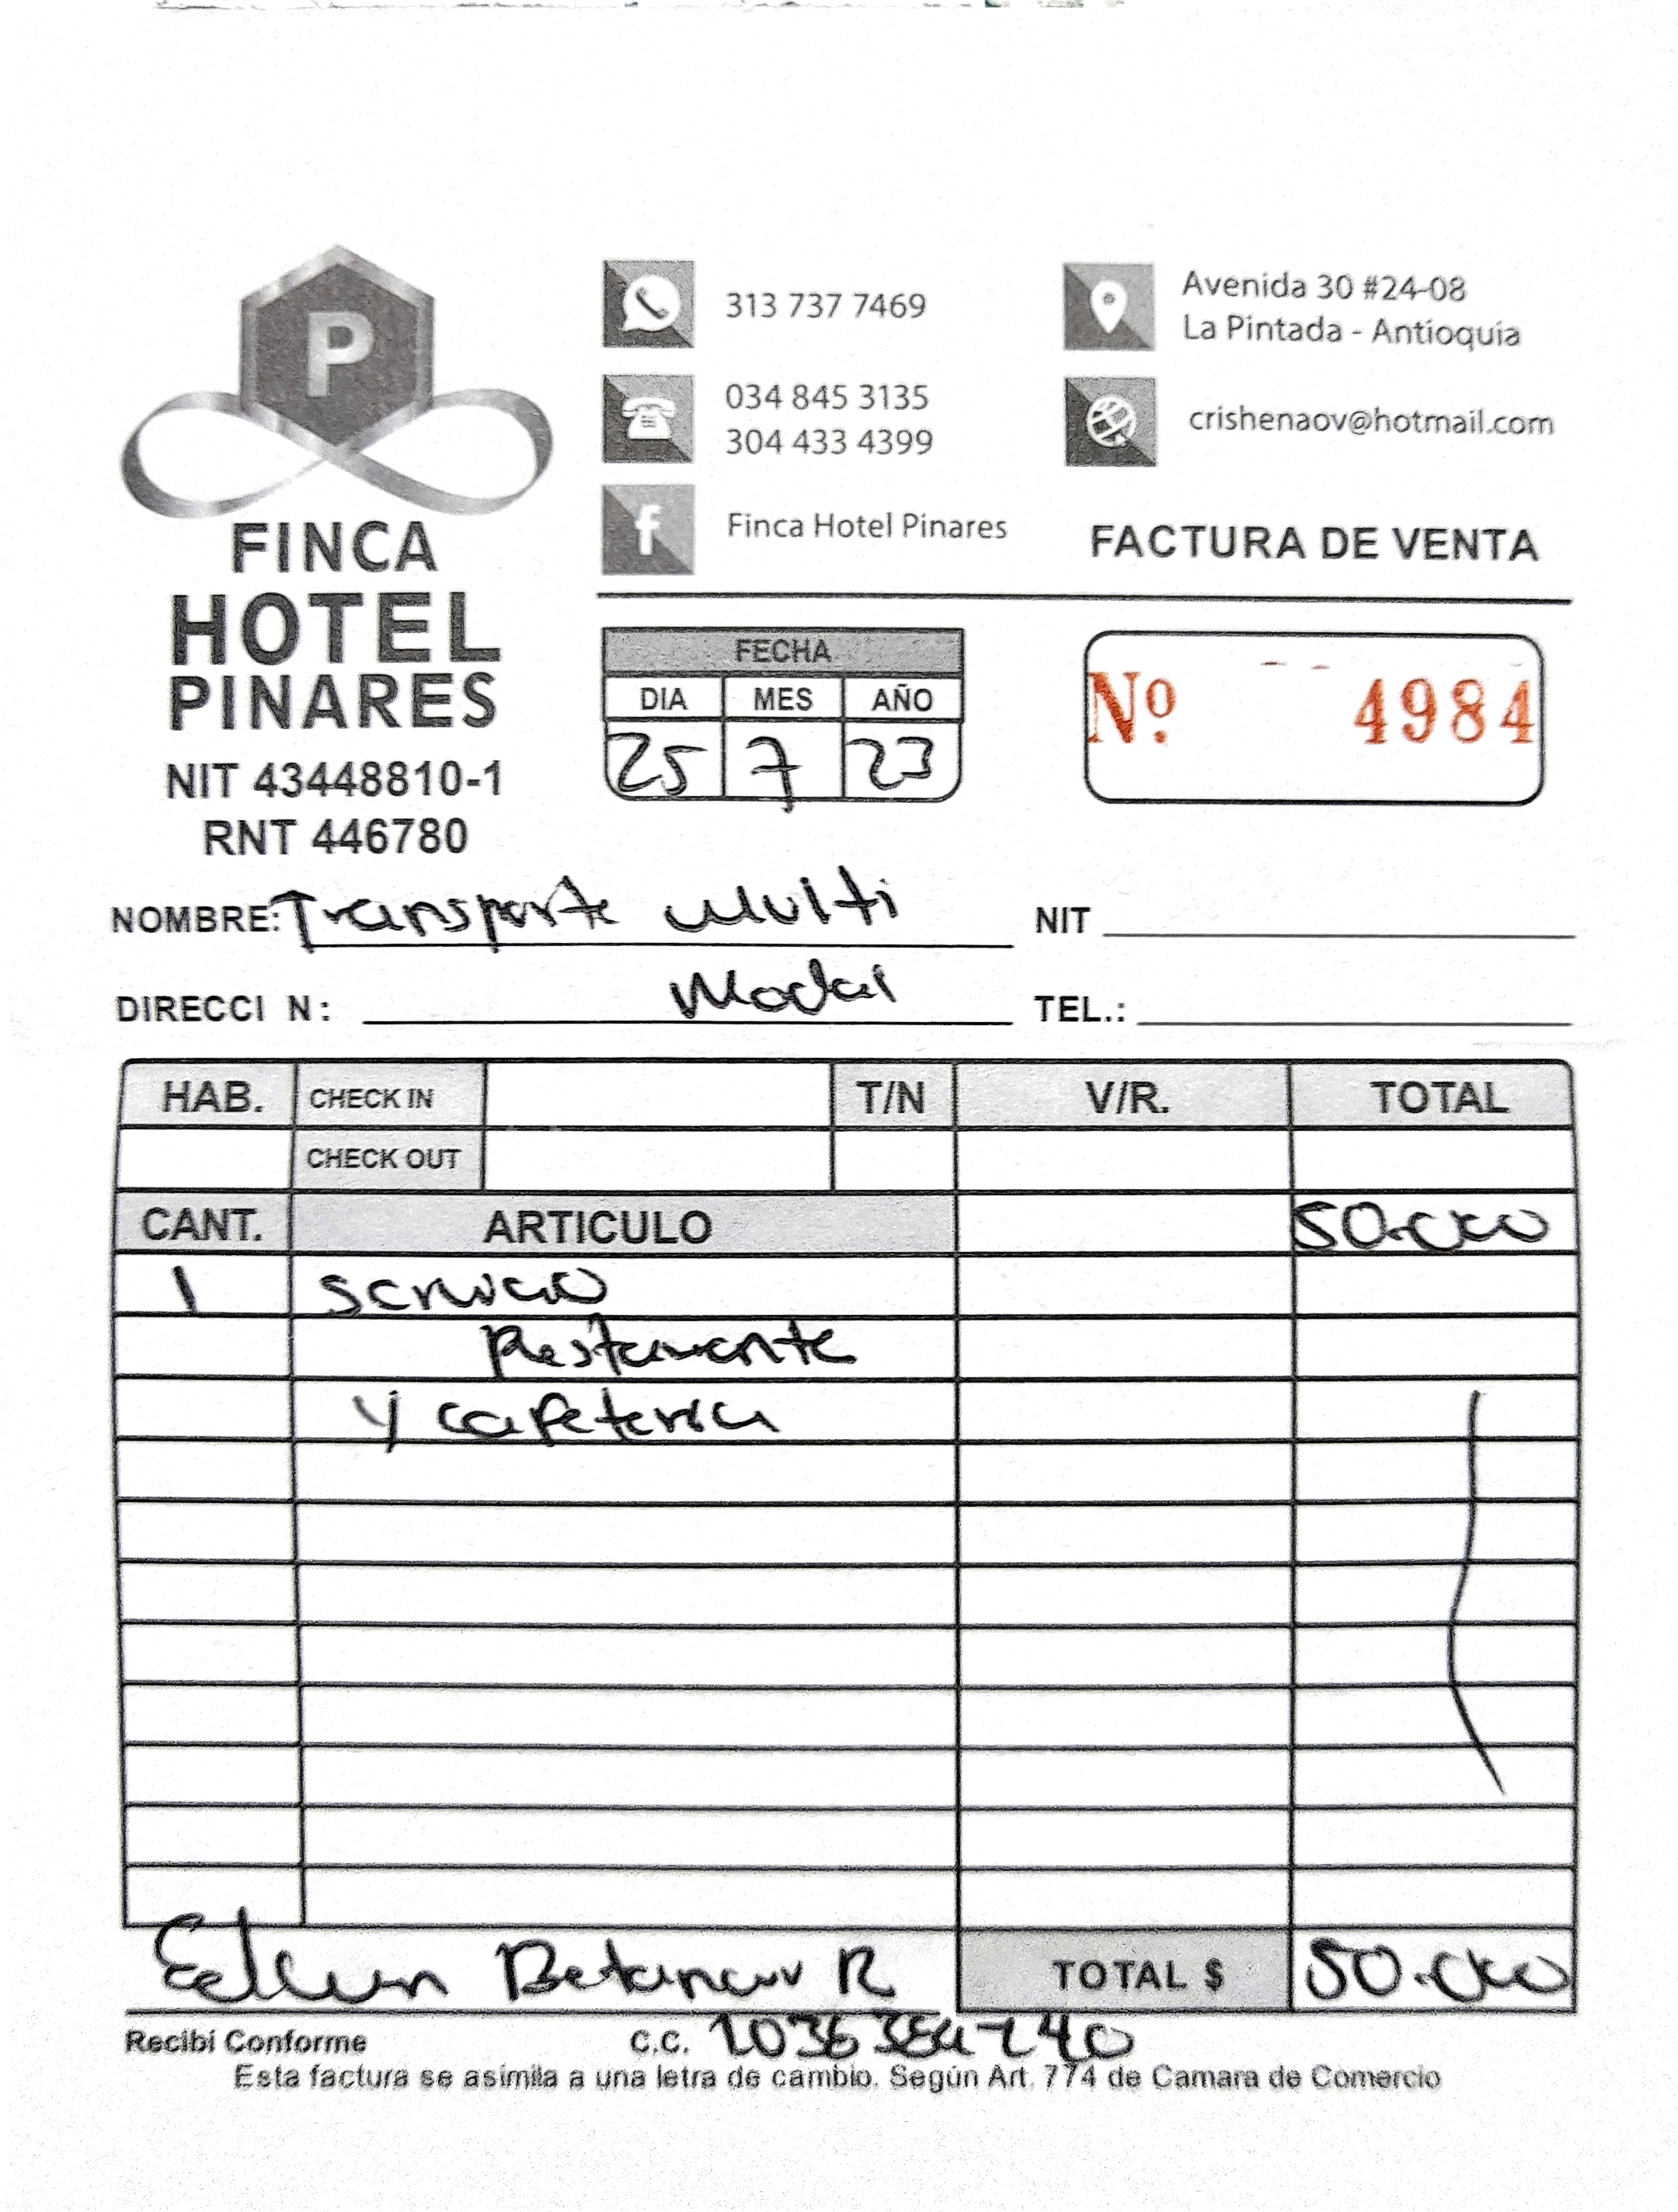 P
FINCA
HOTEL
PINARES
NIT 43448810-1
RNT 446780
313 737 7469
034 845 3135
304 433 4399
Finca Hotel Pinares
Avenida 30 #24-08
La Pintada - Antioquia
crishenaov@hotmail.com
FACTURA DE VENTA
FECHA
DIA MES AÑO
25 7 23
Nº 4984
NOMBRE: Transporte Multi NIT
DIRECCI N: Modal TEL.:
HAB. CHECK IN T/N V/R. TOTAL
CHECK OUT
CANT. ARTICULO 50.000
1 Servicio
Restaurante
y cafeteria
Betancur R TOTAL $ 50.000
Recibí Conforme C.C.
Esta factura se asimila a una letra de cambio. Según Art. 774 de Camara de Comercio